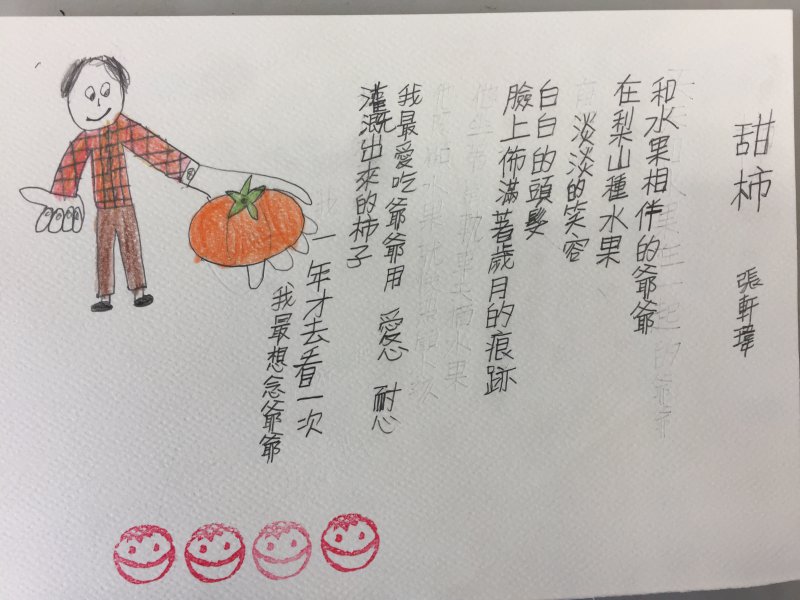 甜柿
張軒瑋
和水果相伴的爺爺
在梨山種水果
淡淡的笑容
白白的頭髮
臉上佈滿著歲月的痕跡
我最愛吃爺爺用 愛心 耐心
灌溉出來的柿子
一年才去看一次
我最想念爺爺